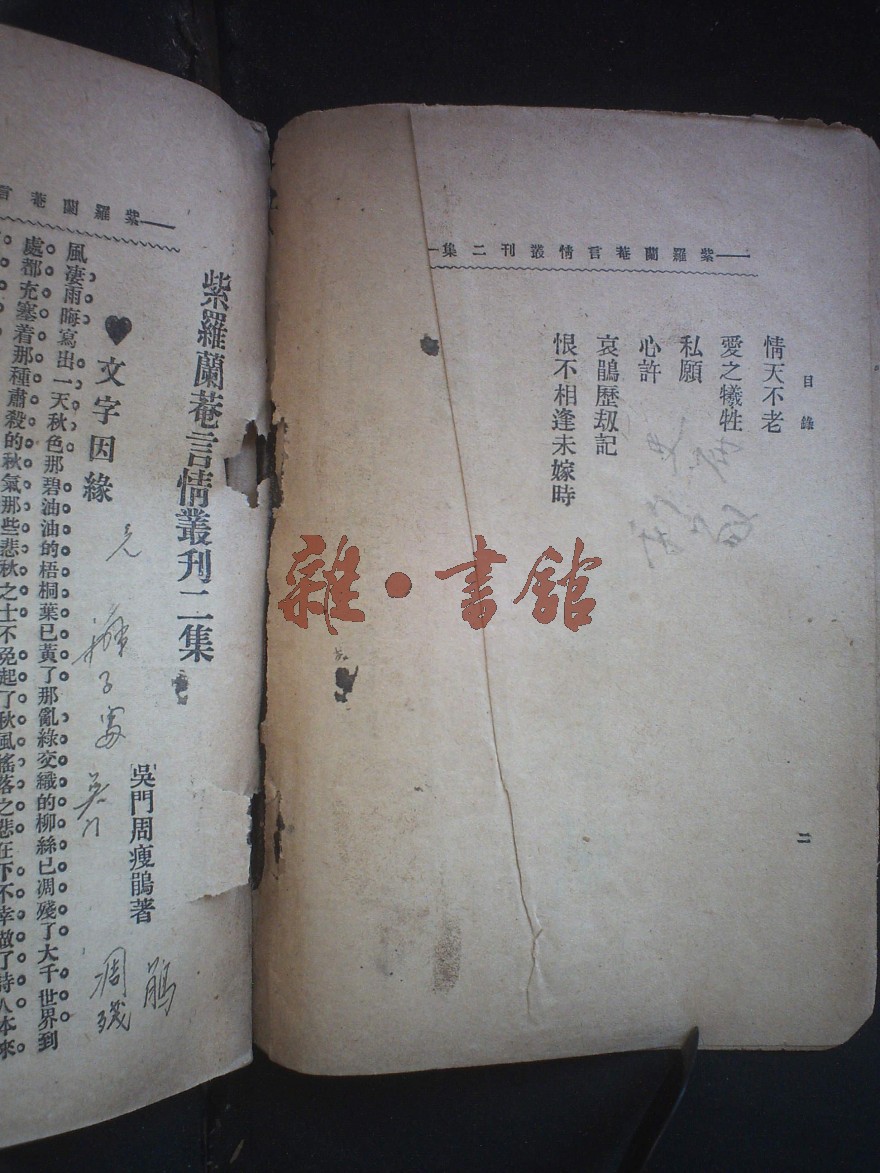 紫羅蘭菴言情叢刊二集
目錄
情天不老
愛之犧牲
私願
心許
哀鵑歷刼記
恨不相逢未嫁時
二
雜·書館
紫羅蘭菴言
紫羅蘭菴言情叢刊二集
吳門周瘦鵑著
♥文字因緣
風凄雨晦寫出一天秋色那碧油油的梧桐葉已黃了那亂綠交織的柳絲已凋殘了大千世界到
處都充塞着那種肅殺的秋氣那些悲秋之士不免起了秋風搖落之悲在下不幸做了詩人本來
鵑
周
殘